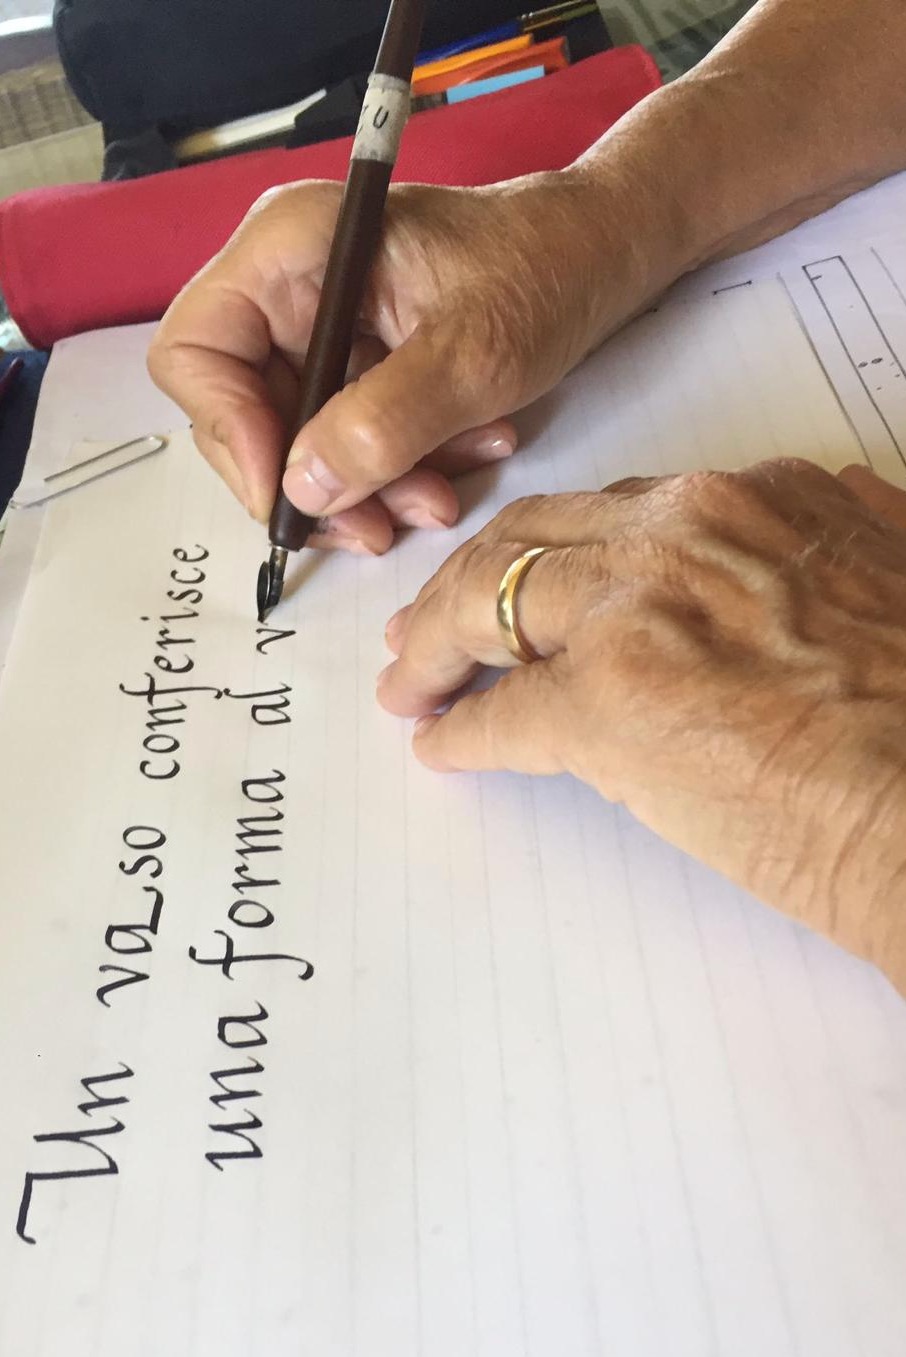 Un vaso conferisce
una forma al v